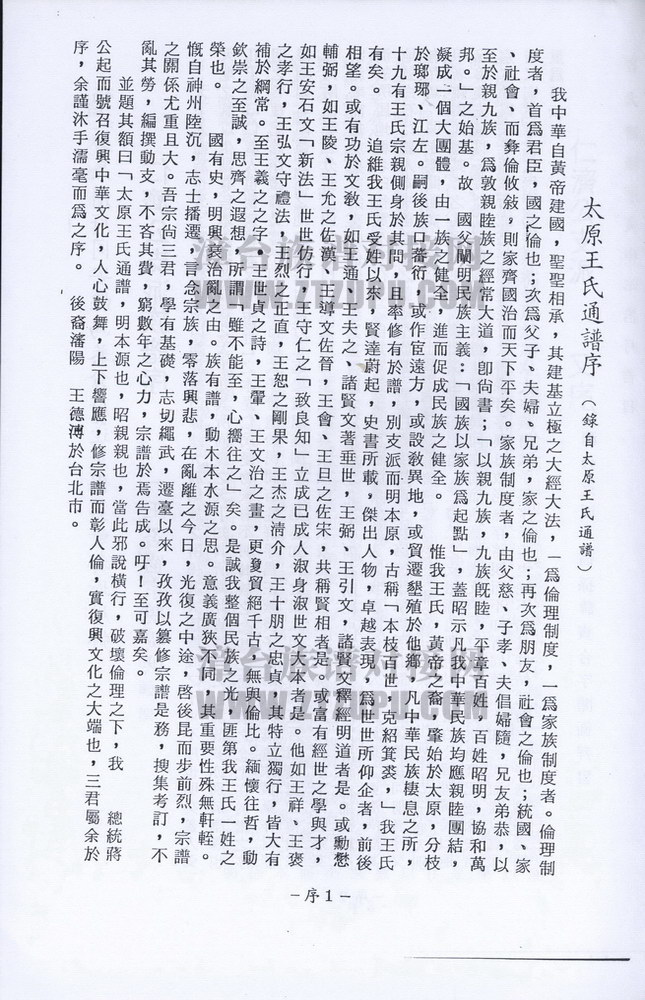 太原王氏通譜序（錄自太原王氏通譜）
我中華自黃帝建國，聖聖相承，其建基立極之大經大法，一爲倫理制度，一爲家族制度者。倫理制
度者，首爲君臣，國之倫也；次爲父子、夫婦、兄弟，家之倫也；再次爲朋友，社會之倫也；統國、家
、社會、而彝倫攸敍，則家齊國治而天下平矣。家族制度者，由父慈、子孝、夫倡婦隨，兄友弟恭，以
至於親九族，爲敦親睦族之經常大道，卽尚書；「以親九族，九族旣睦，平章百姓，百姓昭明，協和萬
邦。」之始基。故　國父闡明民族主義：「國族以家族爲起點」，蓋昭示　我中華民族均應親睦團結，
凝成一個大團體，由一族之健全，進而促成民族之健全。　　惟我王氏，黃帝之裔，肇始於太原，分枝
於瑯琊、江左。嗣後族口蕃衍，或作宦遠方，或設敎異地，或貿遷墾殖於他鄉，凡中華民族棲息之所，
十九有王氏宗親側身於其間，且率修有於譜，別支派而明本原，古稱「本枝百世，克紹箕裘，」我王氏
有矣。　　追維我王氏受姓以來，賢達蔚起，史書所載，傑出人物，卓越表現，爲世世所仰企者，前後
相望。或有功於文敎，如王通、王夫之、諸賢文著垂世，王弼、王引文，諸賢文釋經明道者是。或勳懋
輔弼，如王陵、王允之佐漢，王導文佐晉，王會、王旦之佐宋，共稱賢相者是，或富有經世之學與才，
如王安石文「新法」世世仿行，王守仁之「致良知」立成已成人淑身淑世文大本者是。他如王祥、王裒
之孝行，王弘文守禮法，王烈之正直，王恕之剛果，王杰之清介，王十朋之忠貞，其特立獨行，皆大有
補於綱常。至王羲之之字，王世貞之詩，王翬、王文治之畫，更敻貿絕千古，無與倫比。緬懷往哲，動
欽崇之至誠，思齊之遐想，所謂「雖不能至，心嚮往之」矣。是誠我整個民族之光，匪第我王氏一姓之
榮也。　　國有史，明興衰治亂之由。族有譜，動木本水源之思。意義廣狹不同，其重要性殊無軒輊。
慨自神州陸沉，志士播遷，言念宗族，零落興悲，在亂離之今日，光復之中途，啓後昆而步前烈，宗譜
之關係尤重且大。吾宗尙三君，學有基礎，志切繩武，遷臺以來，孜孜以纂修宗譜是務，搜集考訂，不
亂其勞，編撰動支，不吝其費，窮數年之心力，宗譜於焉告成。吁！至可嘉矣。
並題其額曰「太原王氏通譜，明本源也，昭親親也，當此邪說橫行，破壞倫理之下，我　　總統蔣
公起而號召復興中華文化，人心鼓舞，上下響應，修宗譜而彰人倫，實復興文化之大端也，三君屬余於
序，余謹沐手濡毫而爲之序。　後裔瀋陽　王德溥於台北市。
－序1－
WWW.ZTZUPU.COM
WWW.ZTZUPU.COM